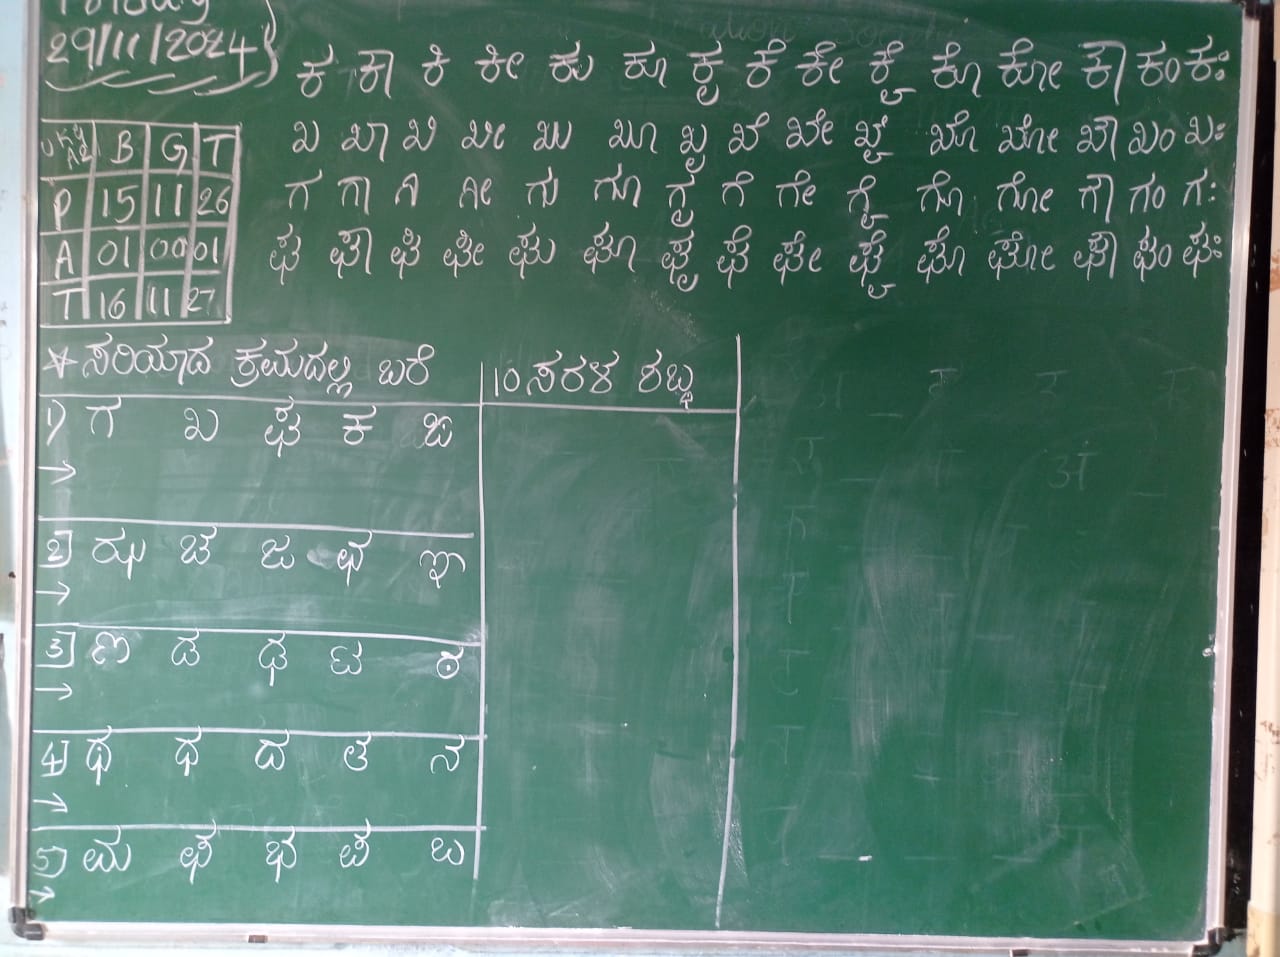 29/11/2024
ಕ ಕಾ ಕಿ ಕೀ ಕು ಕೂ ಕೃ ಕೆ ಕೇ ಕೈ ಕೊ ಕೋ ಕೌ ಕಂ ಕಃ
B G T
ಖ ಖಾ ಖಿ ಖೀ ಖು ಖೂ ಖೃ ಖೆ ಖೇ ಖೈ ಖೊ ಖೋ ಖೌ ಖಂ ಖಃ
P 15 11 26
ಗ ಗಾ ಗಿ ಗೀ ಗು ಗೂ ಗೃ ಗೆ ಗೇ ಗೈ ಗೊ ಗೋ ಗೌ ಗಂ ಗಃ
A 01 00 01
ಘ ಘಾ ಘಿ ಘೀ ಘು ಘೂ ಘೃ ಘೆ ಘೇ ಘೈ ಘೊ ಘೋ ಘೌ ಘಂ ಘಃ
T 16 11 27
ಸರಿಯಾದ ಕ್ರಮದಲ್ಲಿ ಬರೆ
10 ಸರಳ ಶಬ್ಧ
1) ಗ ಖ ಘ ಕ ಙ
→
2] ಝ ಚ ಜ ಛ ಞ
→
3] ಣ ಡ ಢ ಟ ಠ
→
4] ಥ ಧ ದ ತ ನ
→
5] ಮ ಫ ಭ ಪ ಬ
→